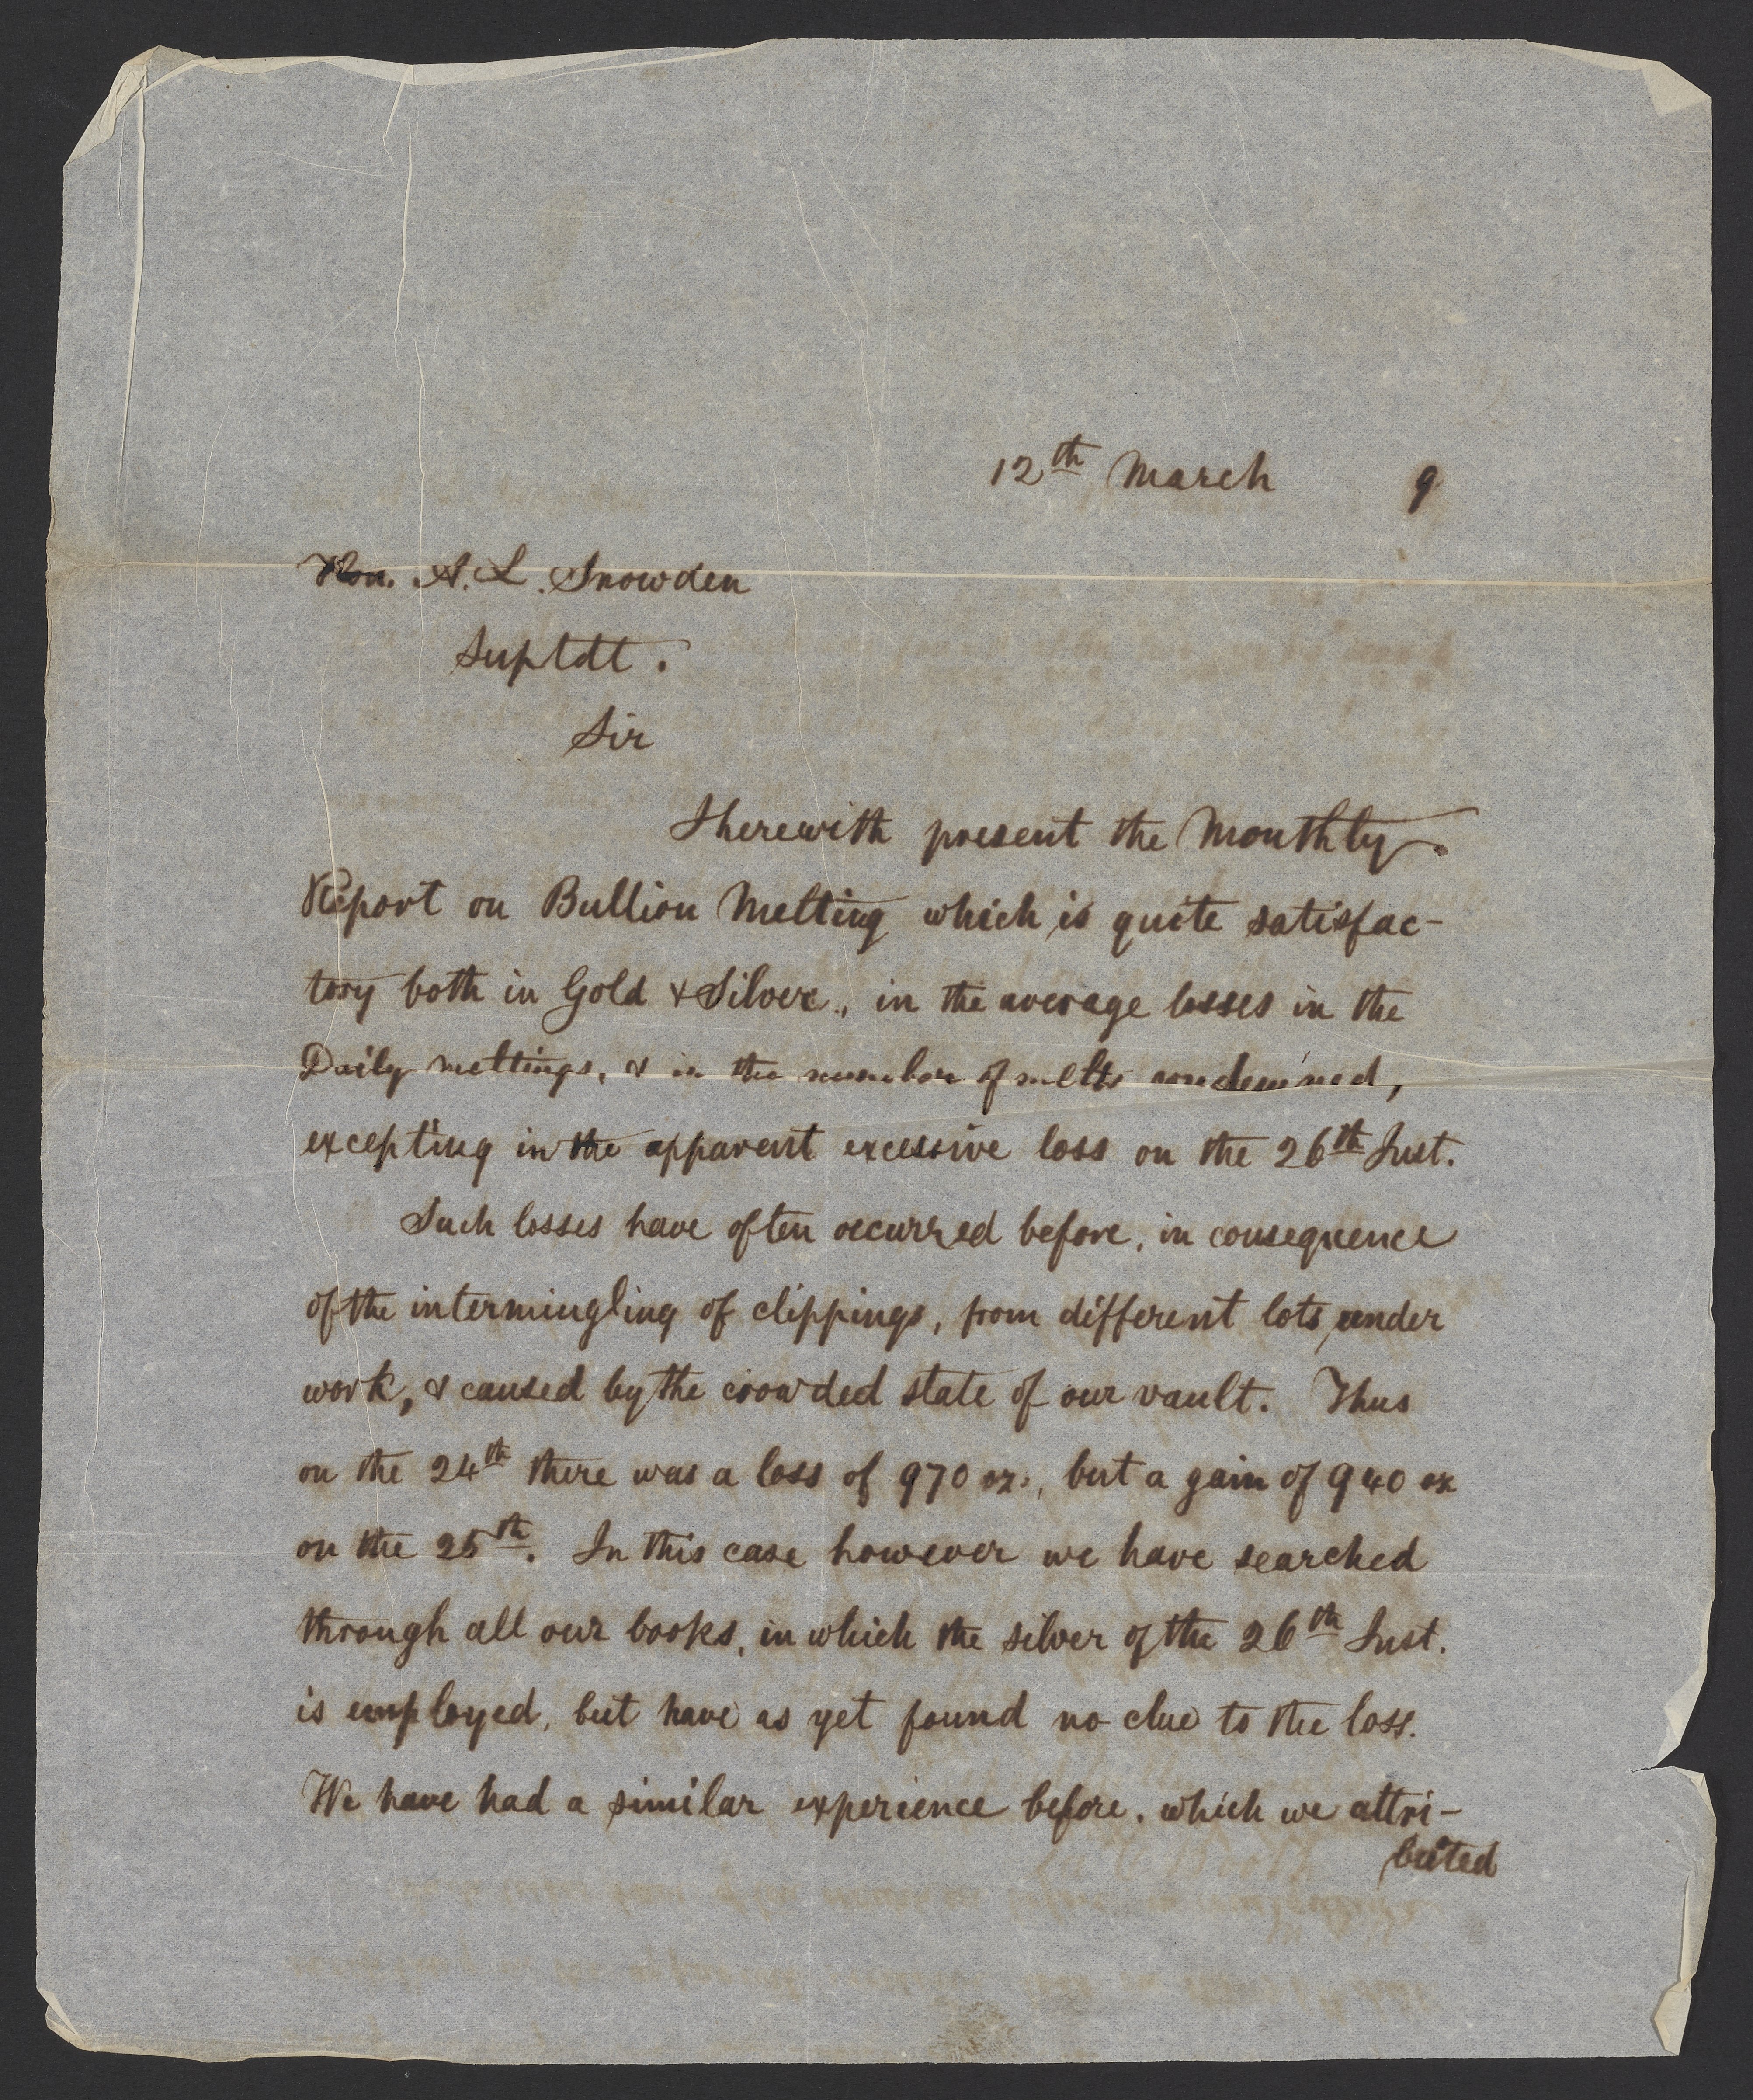 12th March 9
Hon. A. L. Snowden
Suptdt.
Sir
I herewith present the Monthly
Report on Bullion Melting which is quite satisfac-
tory both in Gold & Silver, in the average losses in the
Daily meltings, & in the number of melts condemned,
excepting in the apparent excessive loss on the 26th Inst.
Such losses have often occurred before, in consequence
of the intermingling of clippings, from different lots under
work, & caused by the crowded state of our vault. Thus
on the 24th there was a loss of 970 oz., but a gain of 940 oz
on the 25th. In this case however we have searched
through all our books, in which the silver of the 26th Inst.
is employed, but have as yet found no clue to the loss.
We have had a similar experience before, which we attri-
buted